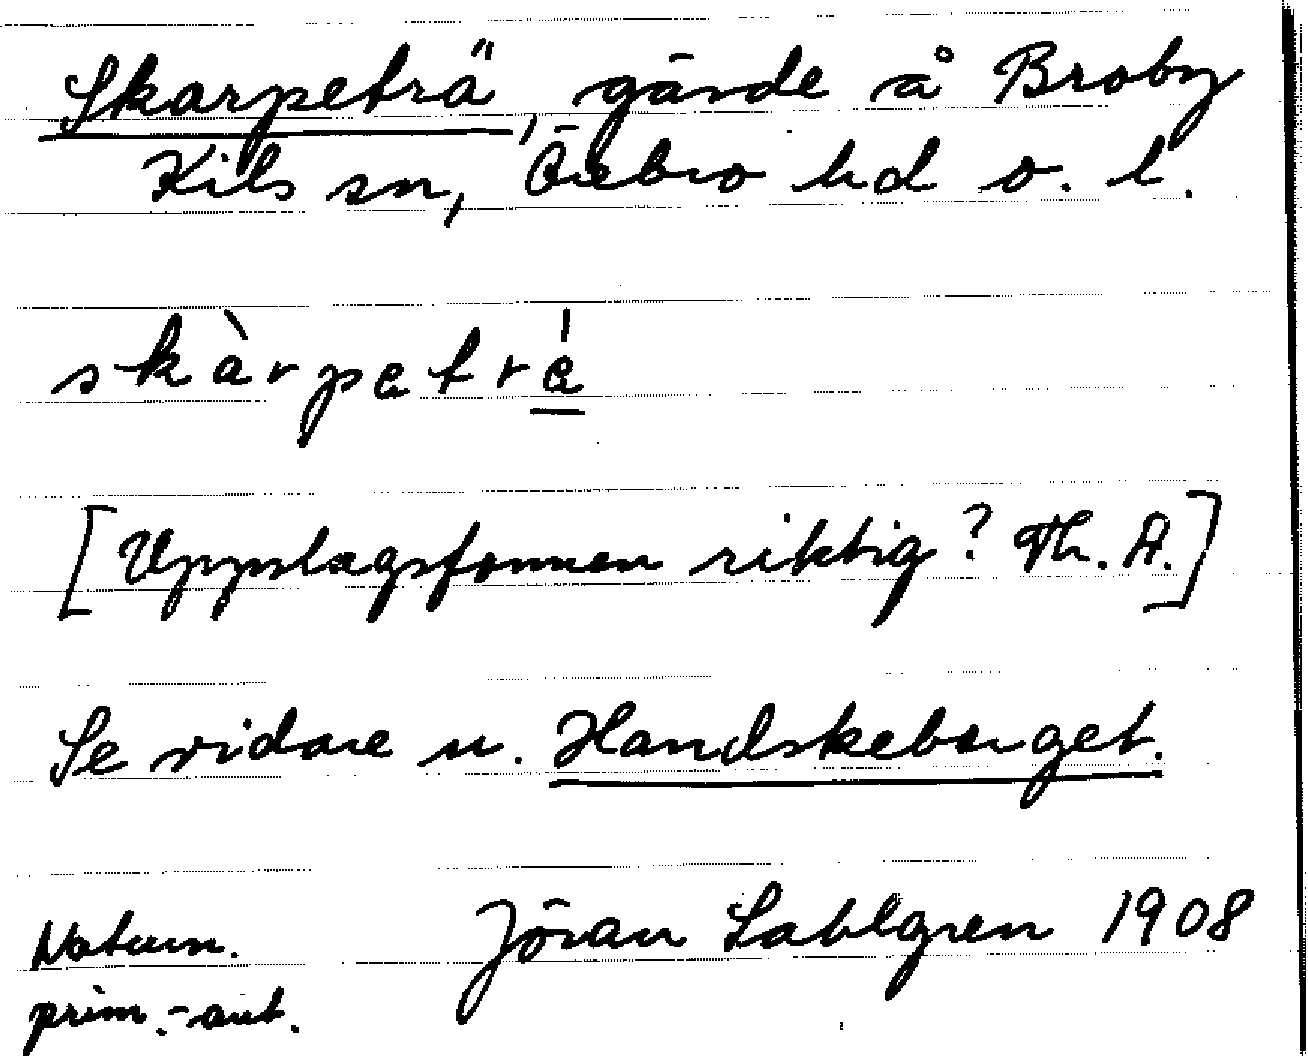 Skarpeträ, gärde å Broby
Kils sn, Örebro hd o. l.
skàrpetrá
[Uppslagsformen riktig? Th. A.]
Se vidare u. Handskeberget.
Naturn.
Jöran Sahlgren 1908
prim.-ant.